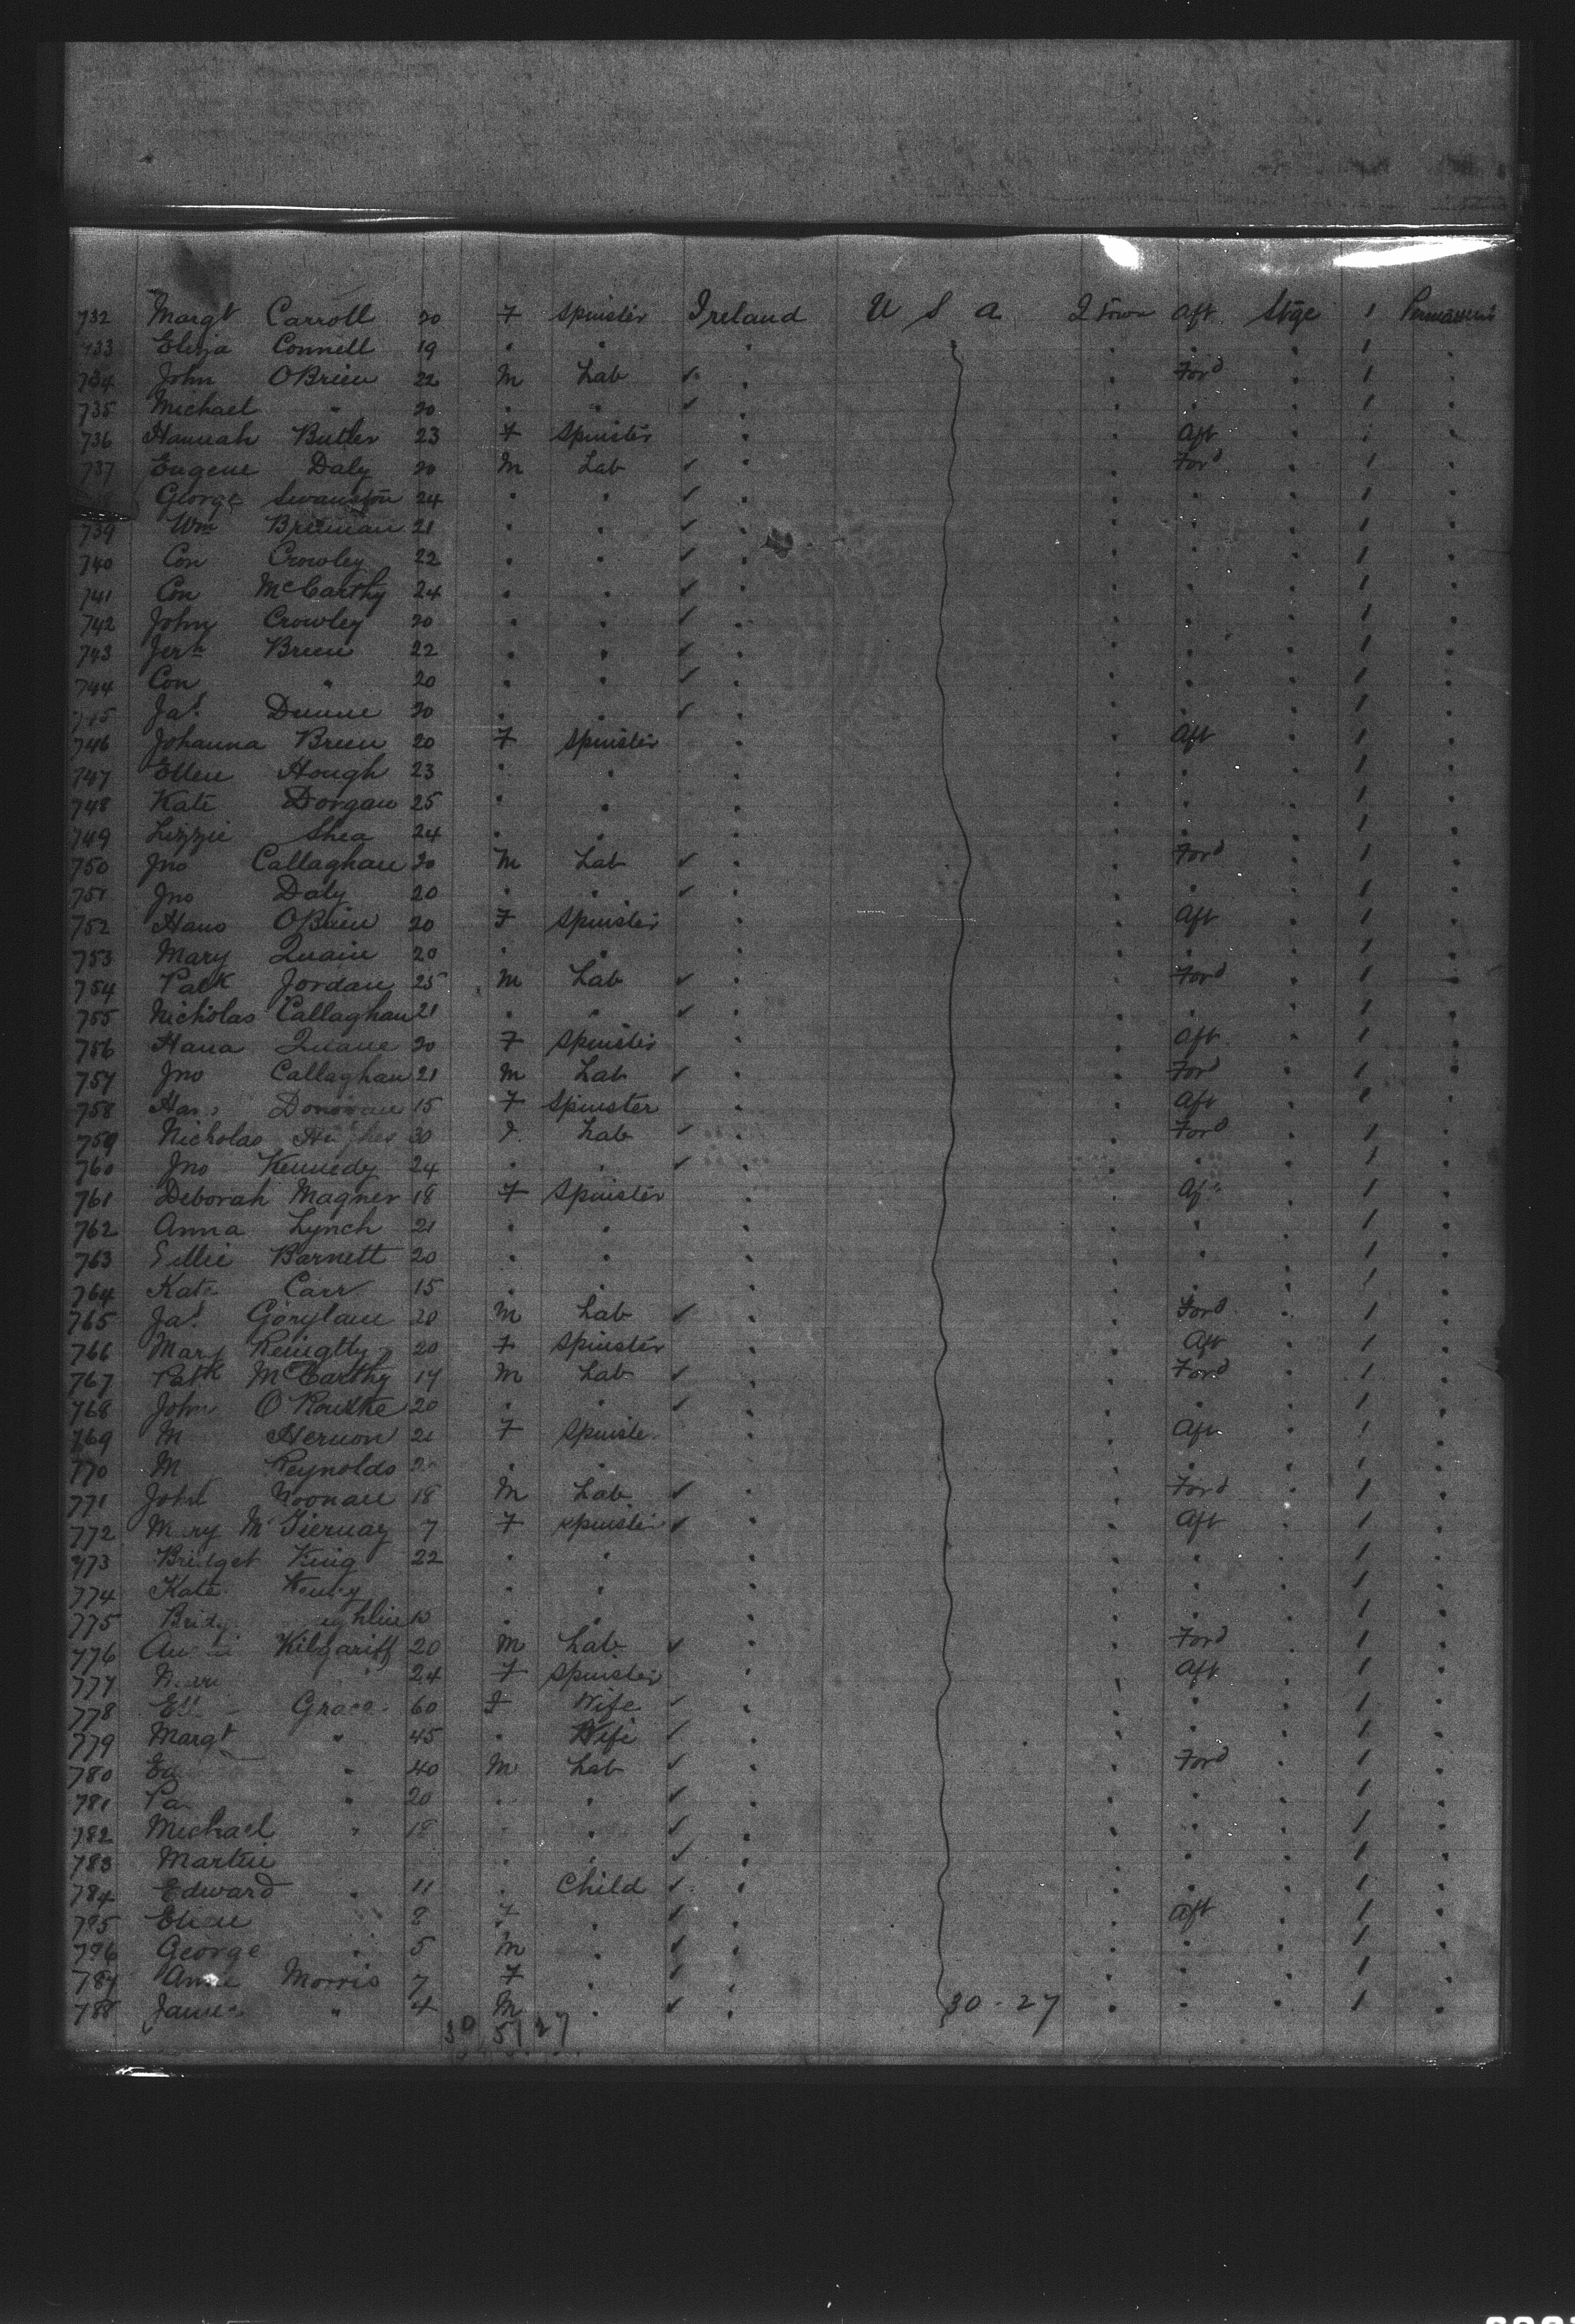 732 Margt Carroll 20 F Spinster Ireland U S A Q Town Aft Stge 1 Permanent
733 Eliza Connell 19 " " " " " " 1 "
734 John OBrien 22 M Lab ✓ " " Ford " 1 "
735 Michael " 20 " " ✓ " " " " 1 "
736 Hannah Butler 23 F Spinster " " Aft " 1 "
737 Eugene Daly 20 M Lab ✓ " " Ford " 1 "
George Swanson 24 " " ✓ " " " " 1 "
739 Wm Brennan 21 " " ✓ " " " " 1 "
740 Con Crowley 22 " " ✓ " " " " 1 "
741 Con McCarthy 24 " " ✓ " " " " 1 "
742 John Crowley 20 " " ✓ " " " " 1 "
743 Jerh Breen 22 " " ✓ " " " " 1 "
744 Con " 20 " " ✓ " " " " 1 "
745 Jas Dunne 20 " " ✓ " " " " 1 "
746 Johanna Breen 20 F Spinster " " Aft " 1 "
747 Ellen Hough 23 " " " " " " 1 "
748 Kate Dorgan 25 " " " " " " 1 "
749 Lizzie Shea 24 " " " " " " 1 "
750 Jno Callaghan 20 M Lab ✓ " " Ford " 1 "
751 Jno Daly 20 " " ✓ " " " " 1 "
752 Hano OBrien 20 F Spinster " " Aft " 1 "
753 Mary Quain 20 " " " " " " 1 "
754 Patk Jordan 25 M Lab ✓ " " Ford " 1 "
755 Nicholas Callaghan 21 " " ✓ " " " " 1 "
756 Hana Quane 20 F Spinster " " Aft " 1 "
757 Jno Callaghan 21 M Lab ✓ " " Ford " 1 "
758 Donovan 15 F Spinster " " Aft " 1 "
759 Nicholas Hughes 30 Lab ✓ " " Ford " 1 "
760 Jno Kennedy 24 " " ✓ " " " " 1 "
761 Deborah Magner 18 F Spinster " " Aft " 1 "
762 Anna Lynch 21 " " " " " " 1 "
763 Barnett 20 " " " " " " 1 "
764 Kate Carr 15 " " " " " " 1 "
765 Jas 20 M Lab ✓ " " Ford " 1 "
766 Mary 20 F Spinster " " Aft " 1 "
767 Patk McCarthy 17 M Lab ✓ " " Ford " 1 "
768 John O Rourke 20 " " ✓ " " " " 1 "
769 M Hernon 21 F Spinster " " Aft " 1 "
770 M Reynolds " " " " " " 1 "
771 John Noonan 18 M Lab ✓ " " Ford " 1 "
772 Mary McTiernay 7 F Spinster ✓ " " Aft " 1 "
773 Bridget King 22 " " " " " " 1 "
774 Kate " " " " " " 1 "
775 " " " " " " 1 "
776 Kilgariff 20 M Lab ✓ " " Ford " 1 "
777 24 F Spinster " " Aft " 1 "
778 Grace 60 F Wife ✓ " " " " 1 "
779 Margt " 45 " Wife ✓ " " " " 1 "
780 " 40 M Lab ✓ " " Ford " 1 "
781 " 20 " " ✓ " " " " 1 "
782 Michael " 18 " " ✓ " " " " 1 "
783 Martin " " ✓ " " " " 1 "
784 Edward " 11 " Child ✓ " " " " 1 "
795 8 F " ✓ " " Aft " 1 "
796 George " 5 M " ✓ " " " " 1 "
787 Anne Morris 7 F " ✓ " " " " 1 "
788 James " 4 M " ✓ " 30 - 27 " " " 1 "
30 57 27